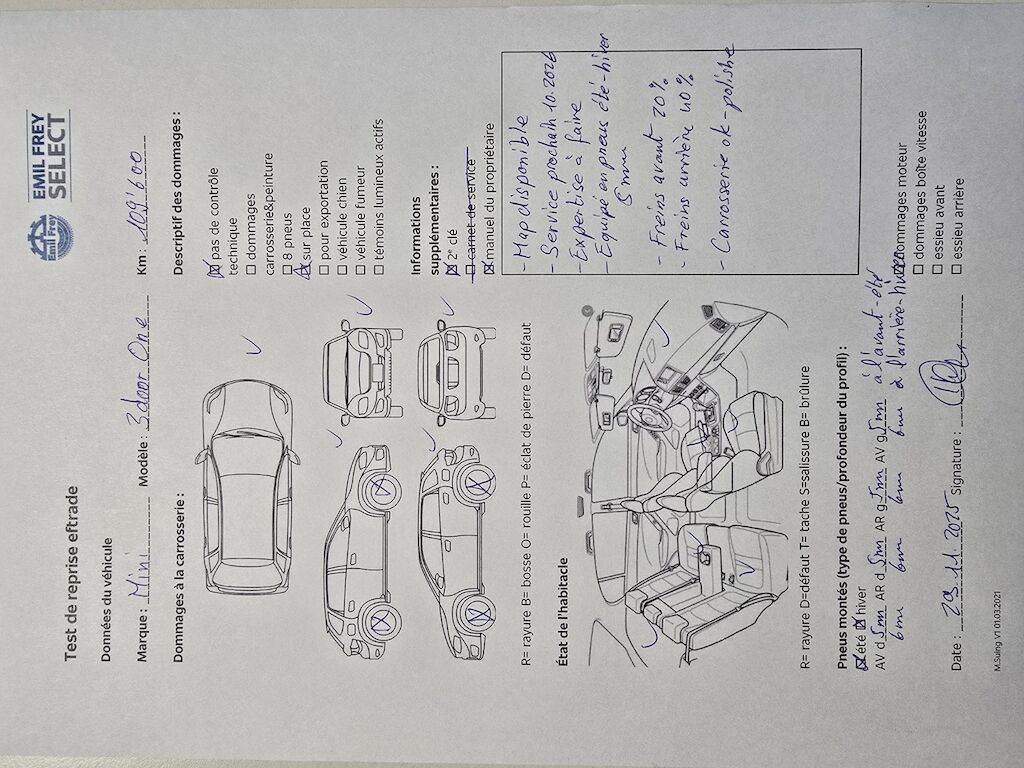 Test de reprise eftrade
Emil Frey
EMIL FREY
SELECT
Données du véhicule
Marque : Mini Modèle : 3door One Km : 109'600
Dommages à la carrosserie :
R= rayure B= bosse O= rouille P= éclat de pierre D= défaut
Descriptif des dommages :
pas de contrôle
technique
dommages
carrosserie&peinture
8 pneus
sur place
pour exportation
véhicule chien
véhicule fumeur
témoins lumineux actifs
Informations
supplémentaires :
2e clé
carnet de service
manuel du propriétaire
État de l'habitacle
- Map disponible
- Service prochain 10.2026
- Expertise à faire
- Equipé en pneus été-hiver
5mm
- Freins avant 20%
- Freins arrière 40%
- Carrosserie ok-polishe
R= rayure D=défaut T= tache S=salissure B= brûlure
Pneus montés (type de pneus/profondeur du profil) :
été hiver
AV d 5mm AR d 5mm AR g 5mm AV g 5mm à l'avant-été
6mm 6mm 6mm 6mm à l'arrière-hiver
dommages moteur
dommages boîte vitesse
essieu avant
essieu arrière
Date : 29.11.2025 Signature :
M.Suing V1 01.03.2021